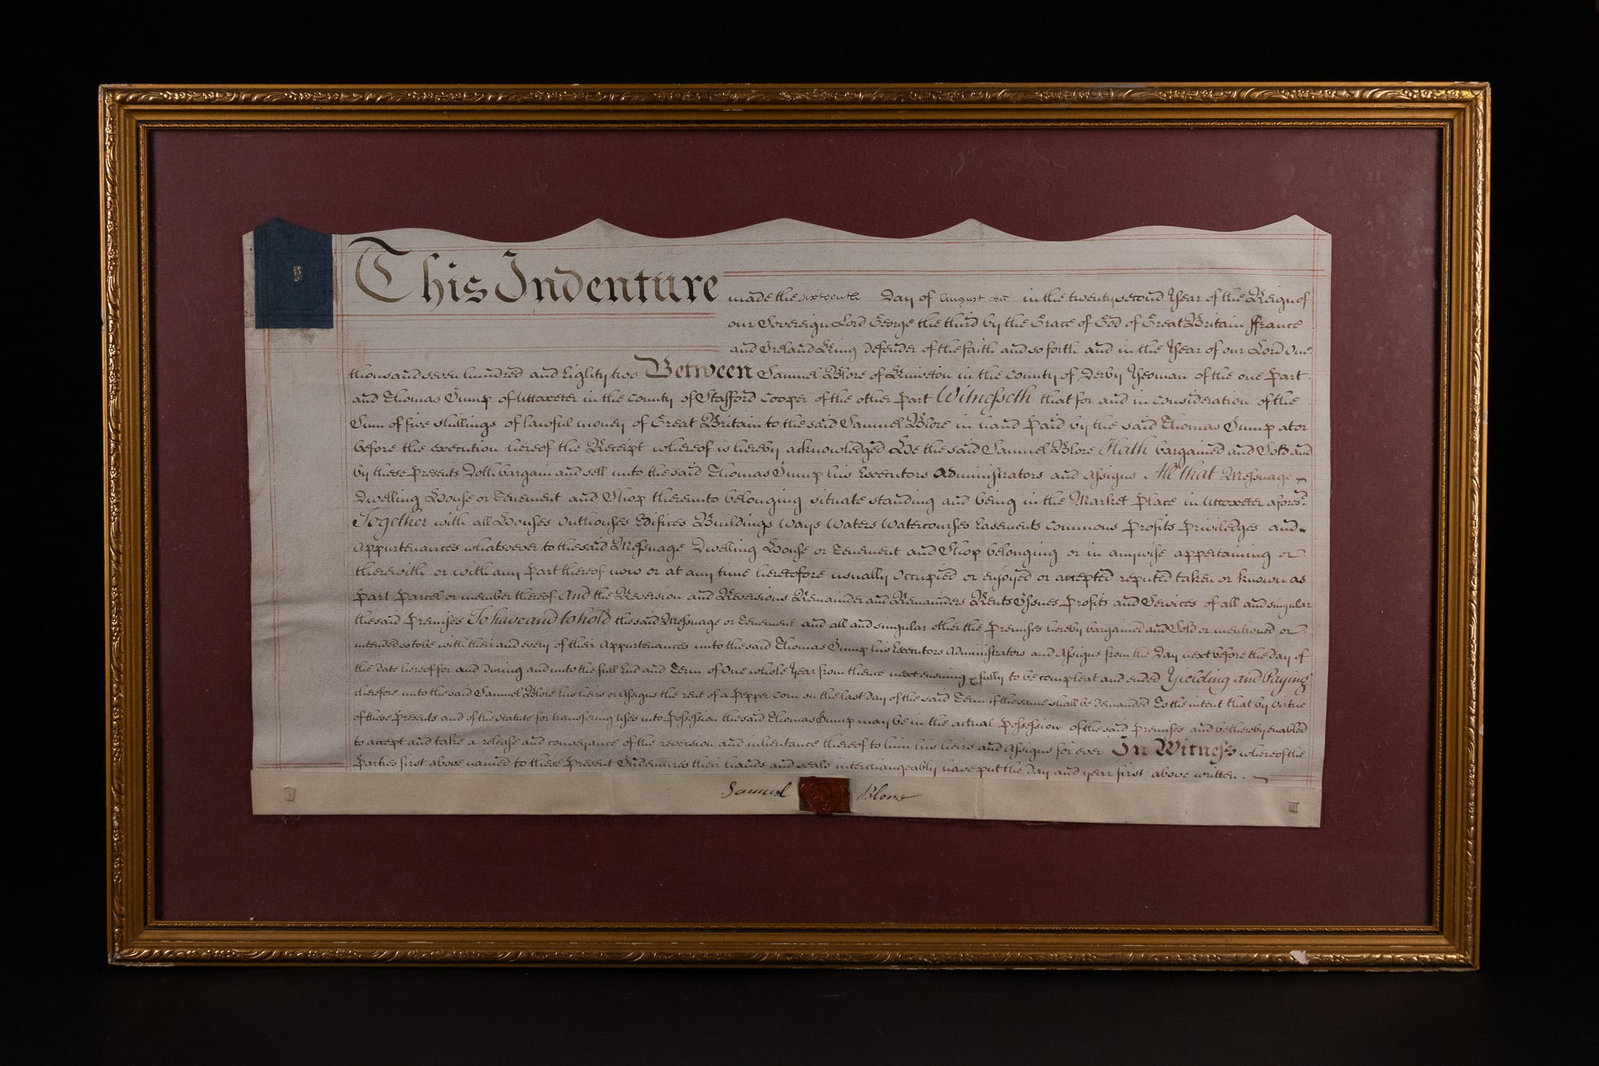 This Indenture made the sixteenth Day of August in the twenty second Year of the Reign of
our Sovereign Lord George the third by the Grace of God of Great Britain ffrance
and Ireland King Defender of the faith and so forth and in the Year of our Lord One
thousand seven hundred and Eighty two Between Samuel Blore of in the County of Derby Yeoman of the one part
and Thomas of Uttoxeter in the County of Stafford Cooper of the other part Witnesseth that for and in consideration of the
Sum of five shillings of lawful money of Great Britain to the said Samuel Blore in hand paid by the said Thomas at or
before the execution hereof the Receipt whereof is hereby acknowledged He the said Samuel Blore Hath bargained and Sold and
by these presents Doth bargain and sell unto the said Thomas his Executors Administrators and Assigns All that Messuage
Dwelling House or Tenement and Shop thereunto belonging situate standing and being in the Market Place in Uttoxeter afores.d
Together with all Houses Outhouses Edifices Buildings Ways Waters Watercourses Easements Commons profits priviledges and
Appurtenances whatsoever to the said Messuage Dwelling House or Tenement and Shop belonging or in anywise appertaining or
therewith or with any part thereof now or at any time heretofore usually Occupied or enjoyed or accepted reputed taken or known as
part parcel or member thereof And the Reversion and Reversions Remainder and Remainders Rents Issues profits and Services of all and singular
the said premises To have and to hold the said Messuage or Tenement and all and singular other the premises hereby bargained and Sold or mentioned or
intended so to be with their and every of their Appurtenances unto the said Thomas his Executors Administrators and Assigns from the Day next before the day of
the date hereof for and during and unto the full End and Term of One whole Year from thence next ensuing & fully to be compleat and ended Yielding and Paying
therefore unto the said Samuel Blore his heirs or Assigns the rent of a pepper Corn on the last Day of the said Term if the same shall be demanded To the intent that by virtue
of these presents and of the Statute for transferring Uses into Possession the said Thomas may be in the actual possession of the said premises and be thereby enabled
to accept and take a release and conveyance of the reversion and inheritance thereof to him his heirs and Assigns for ever In Witness whereof the
parties first above named to these present Indentures their hands and seals interchangeably have put the Day and year first above written.
Samuel Blore